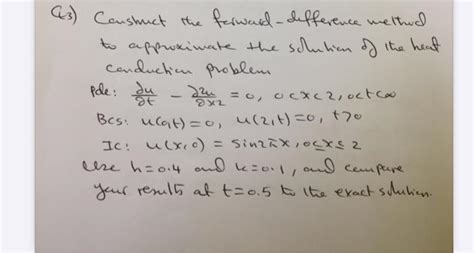 Q3) Construct the forward-difference method
to approximate the solution of the heat
conduction problem
Pde: ∂u/∂t - ∂²u/∂x² = 0, 0<x<2, 0<t<∞
BCs: u(0,t)=0, u(2,t)=0, t>0
IC: u(x,0) = sin2πx, 0≤x≤2
Use h=0.4 and k=0.1, and compare
your results at t=0.5 to the exact solution.